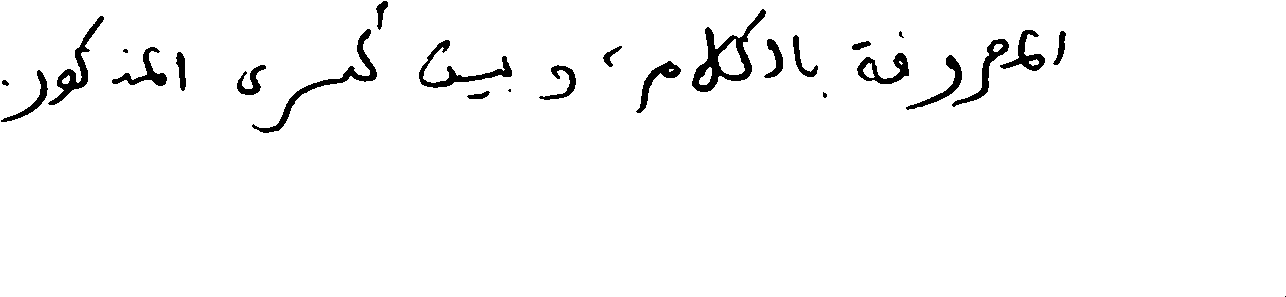 المعروفة بالكلام، وبين كسرى المذكور.